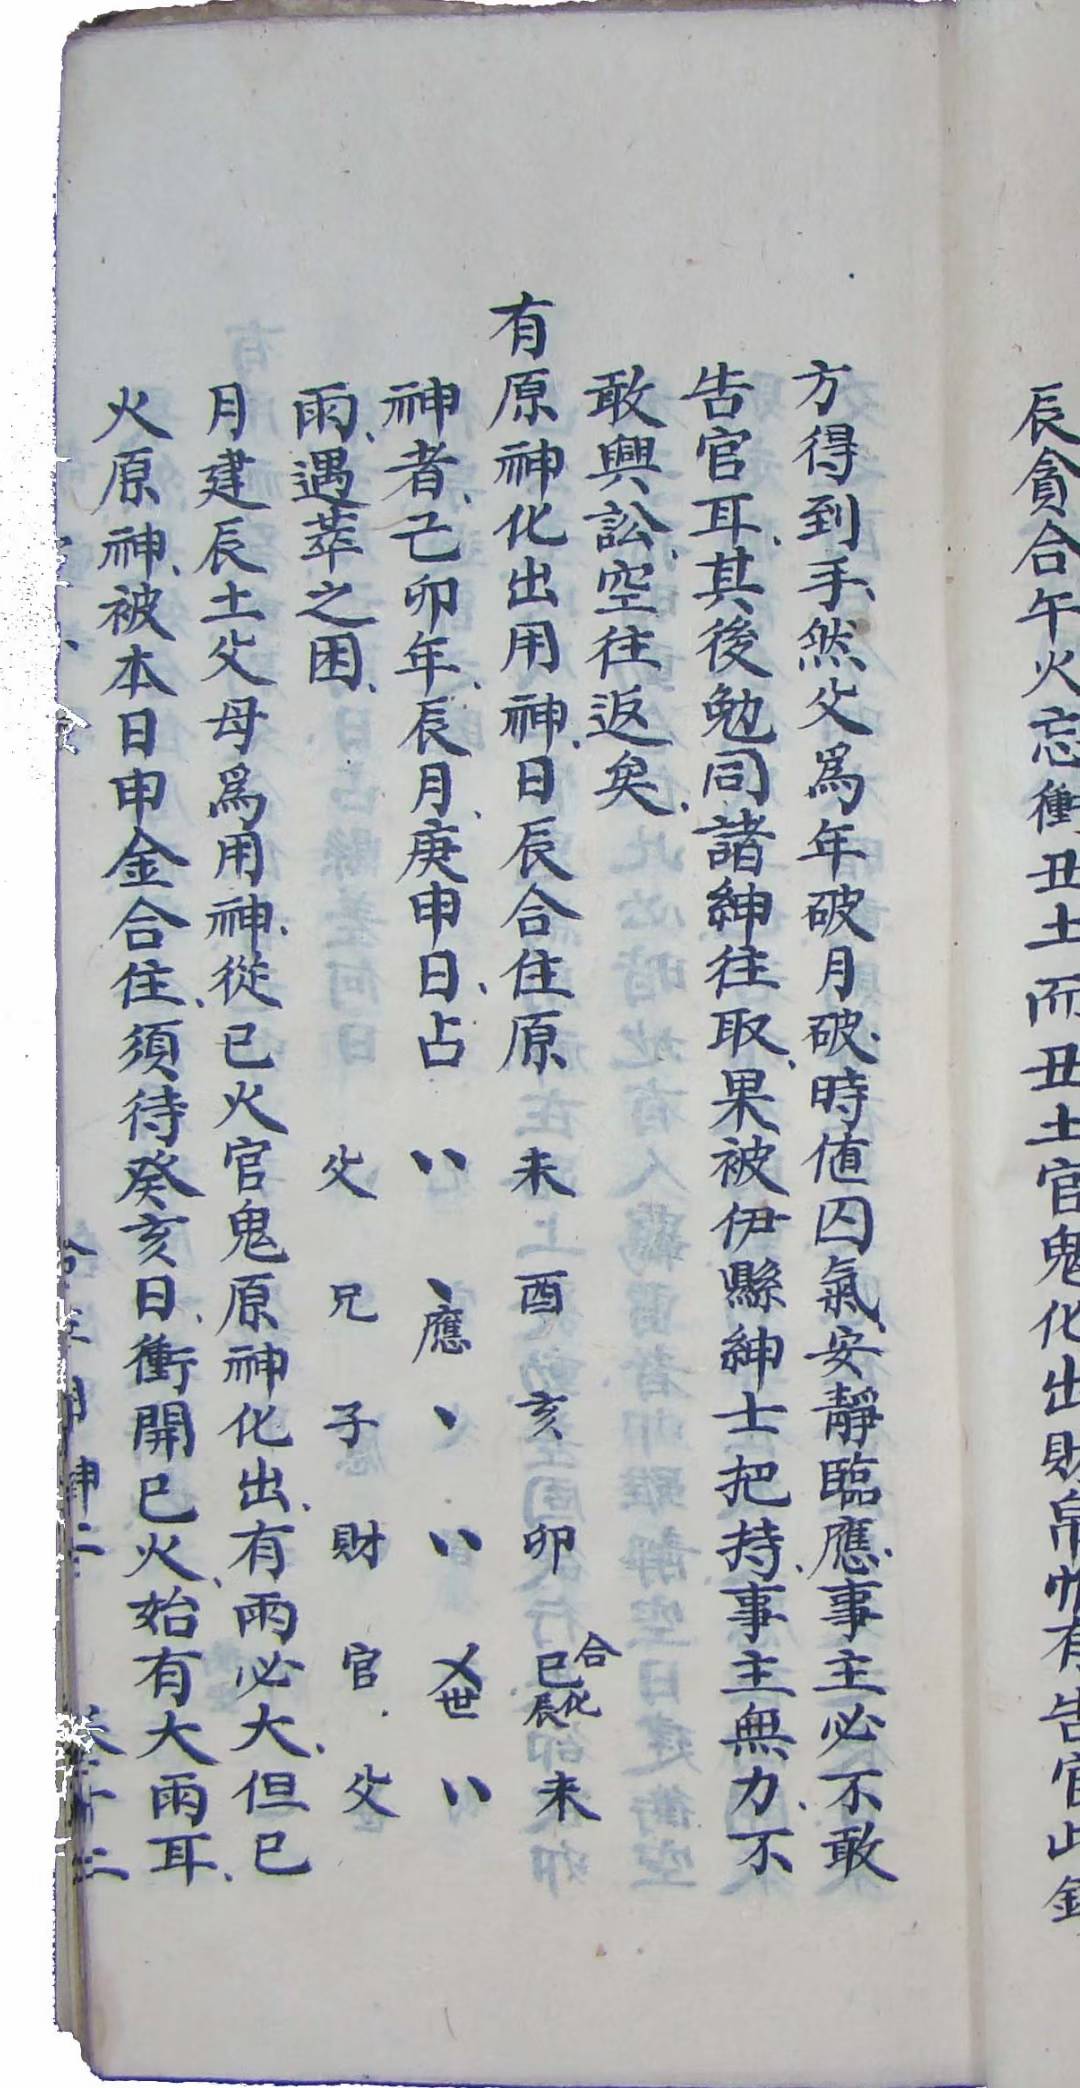 辰貪合午火忘衝丑土而丑土官鬼化出財帛怕有告官此錢
方得到手、然父爲年破月破、時值囚氣、安靜臨應、事主必不敢
告官耳、其後勉同諸紳往取、果被伊縣紳士把持、事主無力、不
敢興訟、空往返矣、
有原神化出用神、日辰合住原 未 酉 亥 卯 巳合化辰 未
神者、己卯年、辰月、庚申日、占 〃 、應 、 〃 乂世 〃
雨、遇萃之困、 父 兄 子 財 官 父
月建辰土父母爲用神、從巳火官鬼原神化出、有雨必大、但巳
火原神、被本日申金合住、須待癸亥日、衝開巳火、始有大雨耳、